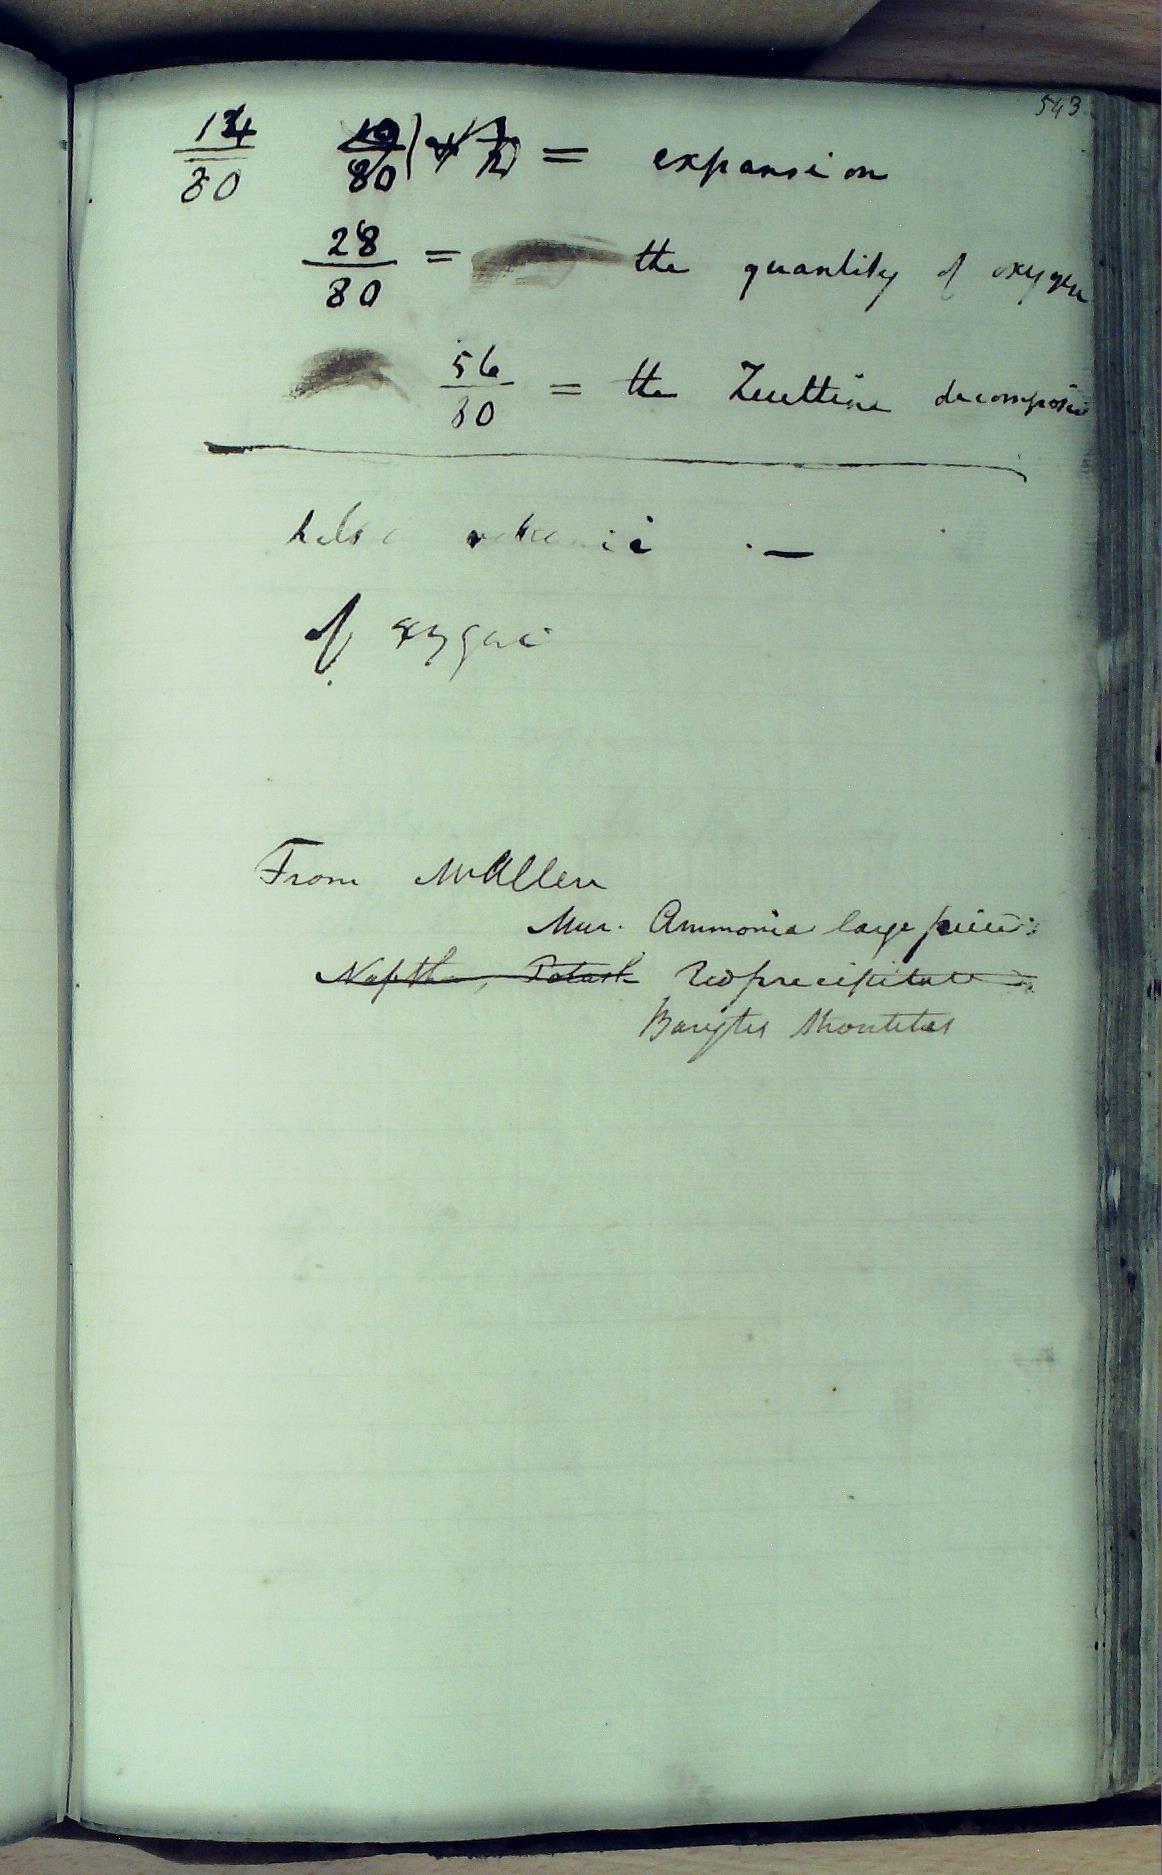 543
14/80 10/80 = expansion
28/80 = the quantity of oxygen
56/80 = the decompos
of oxygen
From McAllen
Mur. Ammonia large pieces
Naptha, Potash Redprecipitate
Barytes Strontites